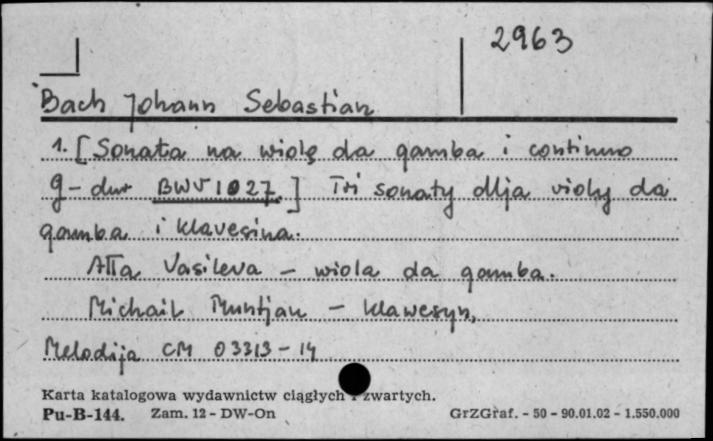 2963
Bach Johann Sebastian
1. [Sonata na wiolę da gamba i continuo
g-dur BWV 1027] Tri sonaty dlja violy da
gamba i klavesina.
Ałła Vasileva – wiola da gamba.
Michail Muntjan – klawesyn,
Melodija CM 03313-14
Karta katalogowa wydawnictw ciągłych i zwartych.
Pu-B-144. Zam. 12 - DW-On GrZGraf. - 50 - 90.01.02 - 1.550.000